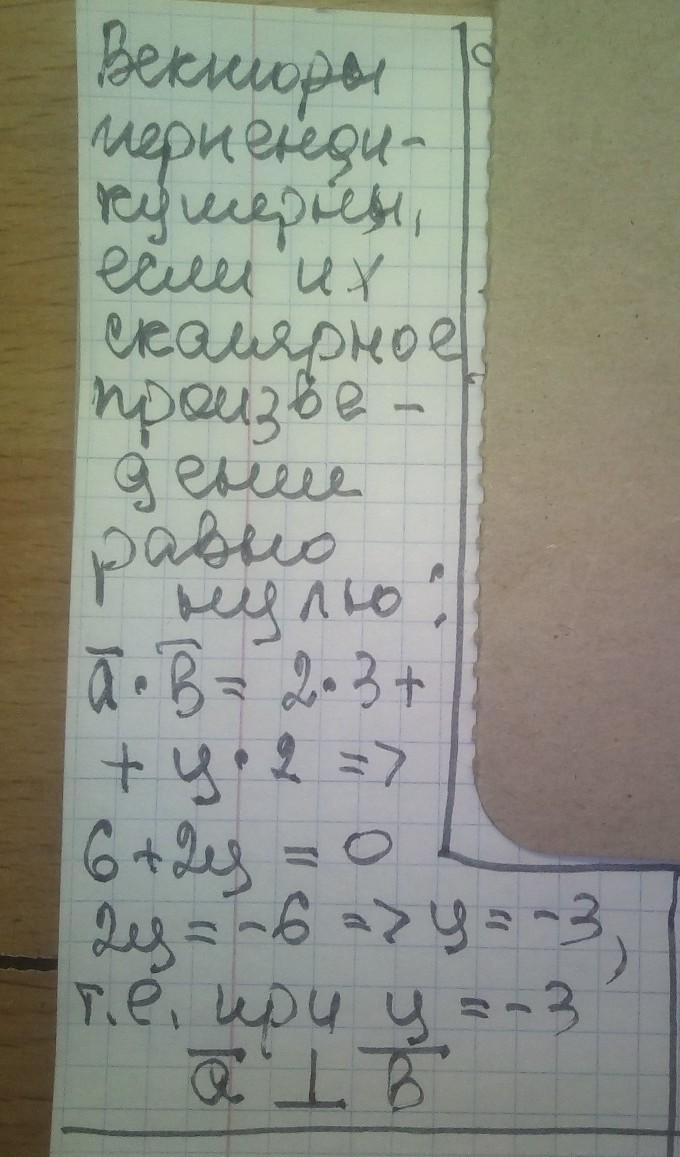 Векторы
перпенди-
кулярны,
если их
скалярное
произве-
дение
равно
нулю:
a̅·b̅= 2·3+
+ y·2 =>
6+2y = 0
2y = -6 => y = -3,
т.е. при y = -3
a̅ ⊥ b̅